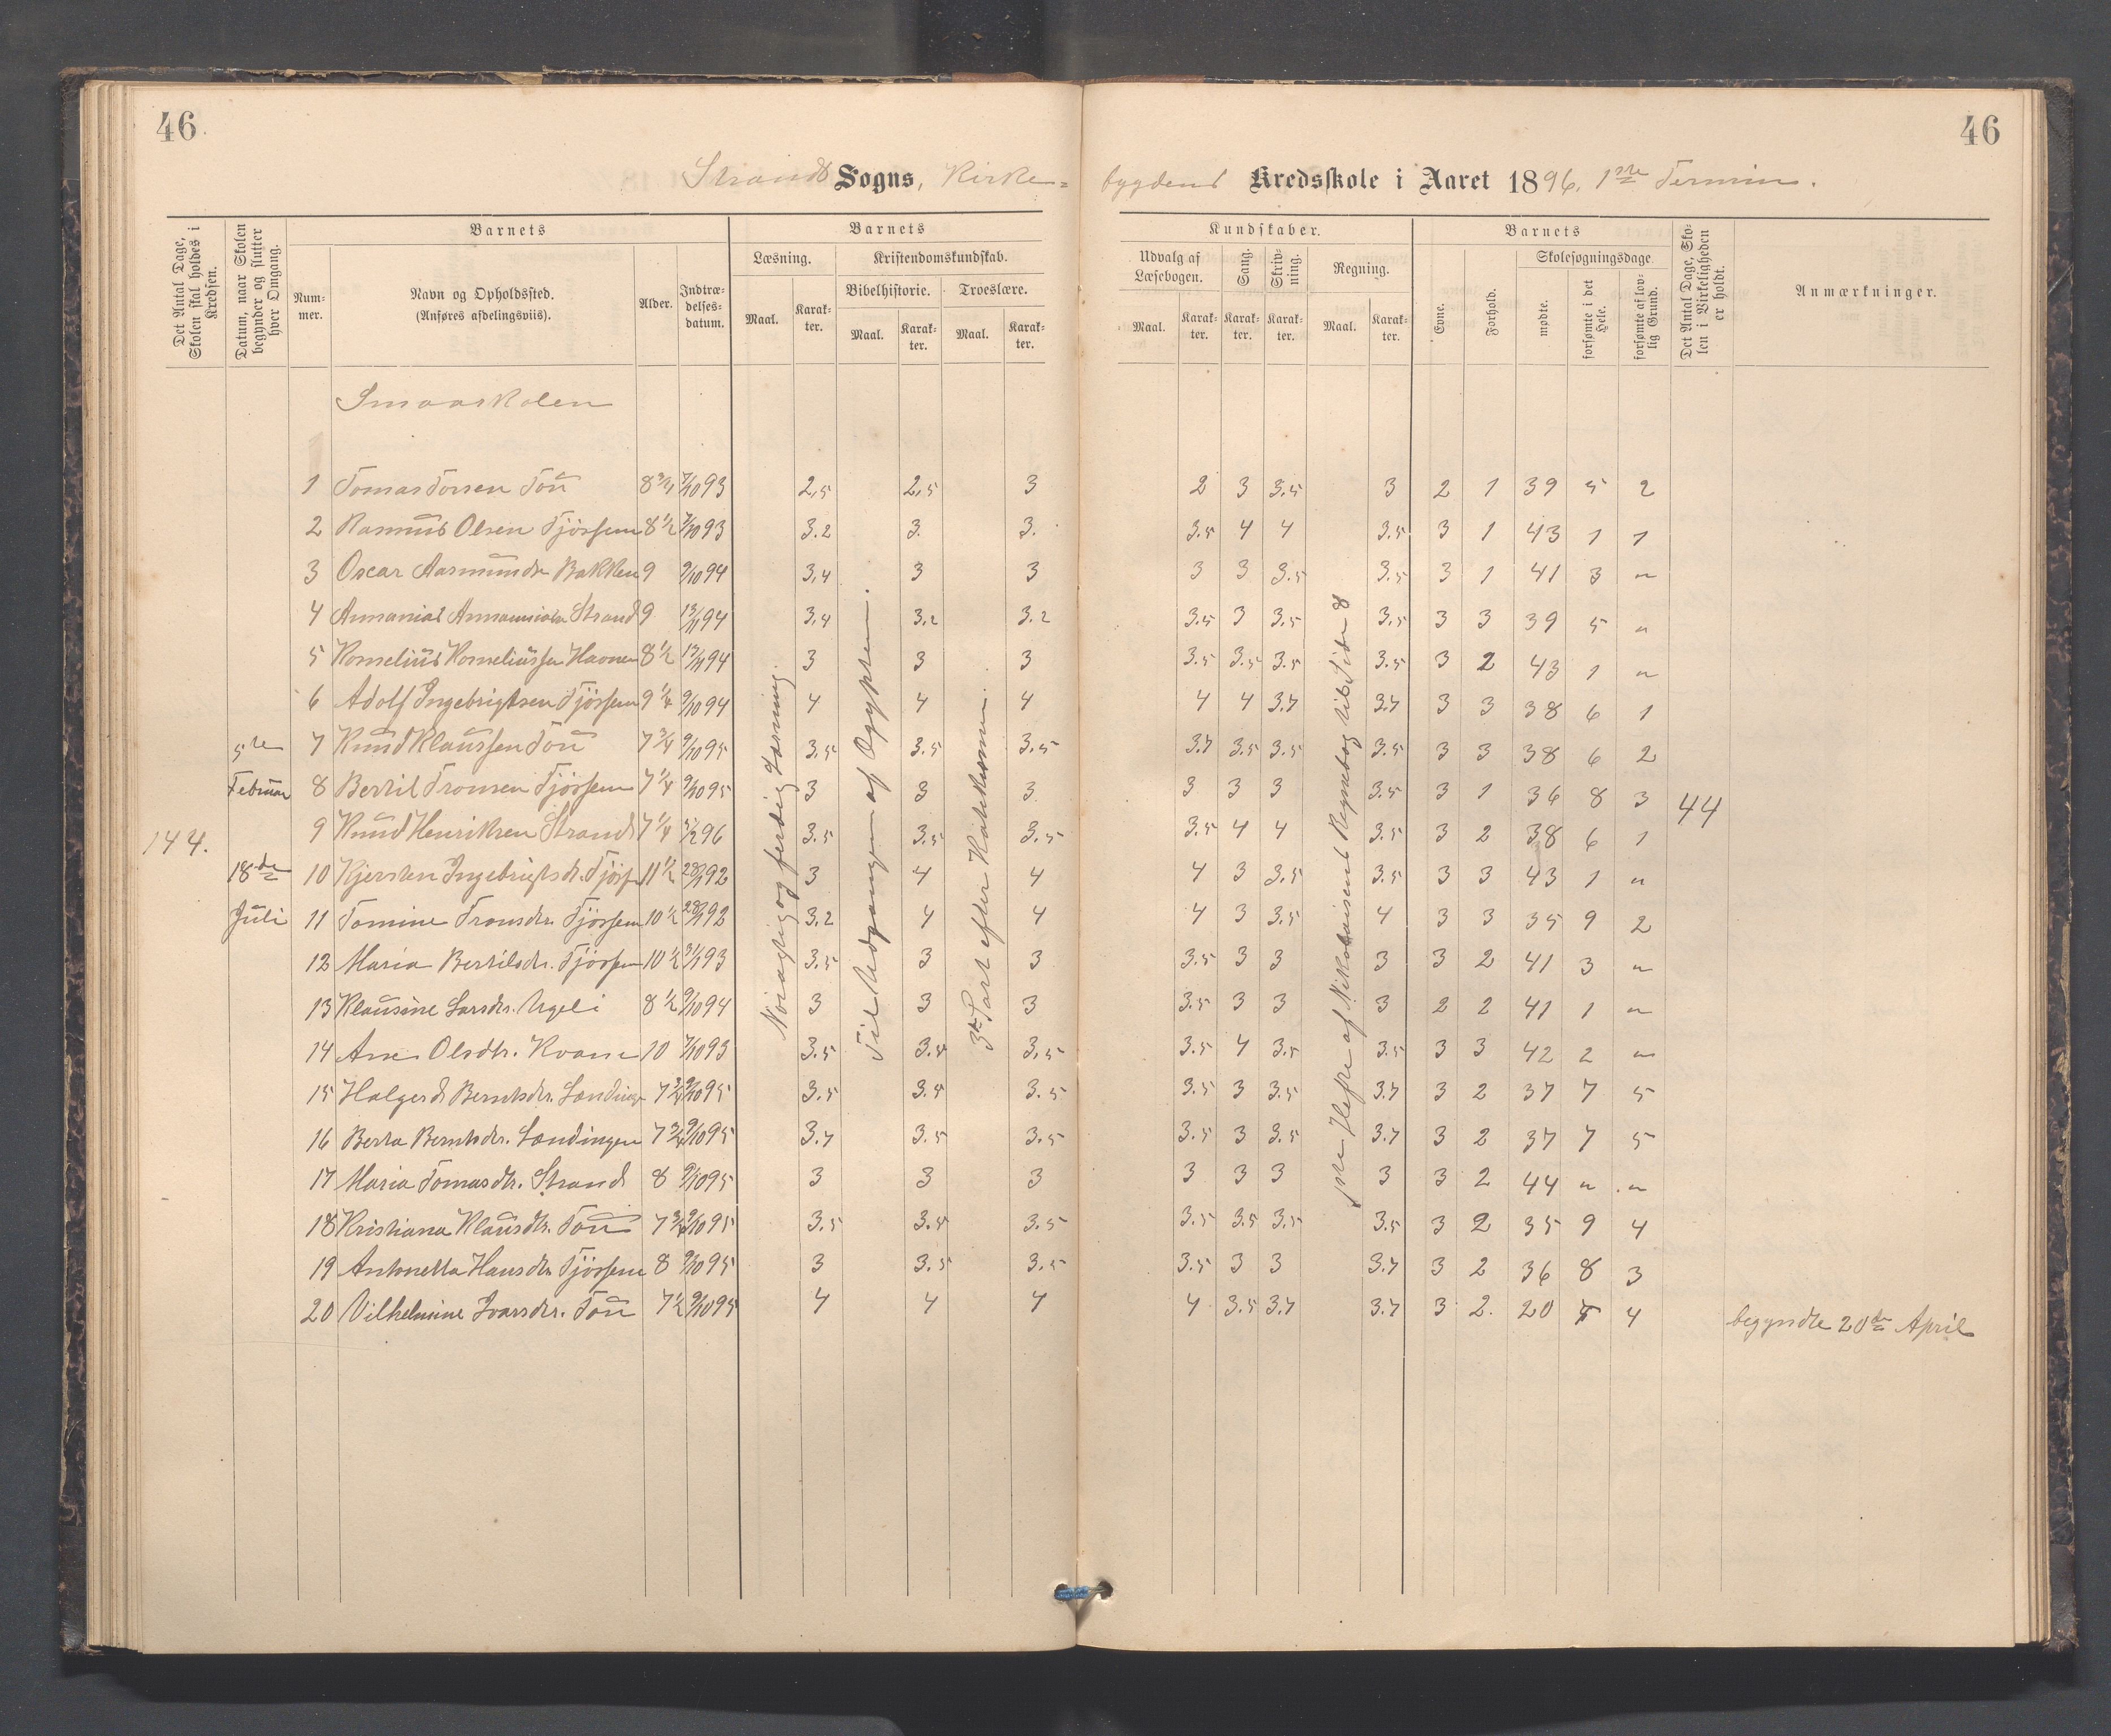 46.
46
Strands Sogns, Kirke=
bygdens Kredsskole i Aaret 1896. 1ste Termin.
Det Antal Dage, Skolen skal holdes i Kredsen.
Datum, naar Skolen begynder og slutter hver Omgang.
Barnets
Nummer.
Navn og Opholdssted.
(Anføres afdelingsviis).
Alder.
Indtrædelses-datum.
Barnets
Læsning.
Maal.
Karakter.
Kristendomskundskab.
Bibelhistorie.
Maal.
Karakter.
Troeslære.
Maal.
Karakter.
Kundskaber.
Udvalg af Læsebogen.
Maal.
Karakter.
Sang.
Karakter.
Skrivning.
Karakter.
Regning.
Maal.
Karakter.
Barnets
Evne.
Forhold.
Skolesøgningsdage.
mødte.
forsømte i det Hele.
forsømte af lovlig Grund.
Det Antal Dage, Skolen i Virkeligheden er holdt.
Anmærkninger.
Smaaskolen
144.
5te
Februar
18de
Juli
Til Udgangen af Ægypten.
3die Part efter Katekismen.
44
1 Tomas Torsen Tou 8 3/4 7/10 93 2,5 2,5 3 2 3 3.5 3 2 1 39 5 2
2 Rasmus Olsen Tjössem 8 1/2 7/10 93 3.2 3. 3. 3.5 4 4 3.5 3 1 43 1 1
3 Oscar Aasmunds. Bakken 9 9/10 94 3,4 3 3 3 3 3.5 3.5 3 1 41 3 "
4 Annanias Annaniasen Strand 9 13/11 94 3,4 3,2 3.2 3.5 3 3.5 3.5 3 3 39 5 "
5 Kornelius Korneliussen Havnen 8 1/2 13/11 94 3 3 3 3.5 3.5 3.5 3.5 3 2 43 1 "
6 Adolf Ingebrigtsen Tjössem 9 1/4 9/10 94 4 4 4 4 4 3.7 3.7 3 3 38 6 1
7 Knud Klaussen Tou 7 3/4 9/10 95 3,5 3.5 3,5 3.7 3.5 3.5 3.5 3 3 38 6 2
8 Bertil Tronsen Tjössem 7 1/4 9/10 95 3 3 3 3 3 3 3.5 3 1 36 8 3
9 Knud Henriksen Strand 7 1/4 5/2 96 3.5 3.5 3.5 3.5 4 4 3.5 3 2 38 6 1
10 Kjersten Ingebrigtsdt. Tjöss. 11 1/2 28/1 92 3 4 4 4 3 3.5 3.5 3 3 43 1 "
11 Tomine Tronsdtr. Tjössem 10 1/2 28/1 92 3,2 4 4 4 3 3.5 4 3 3 35 9 2
12 Maria Bertilsdtr. Tjössem 10 1/2 31/1 93 3.5 3 3 3.5 3 3 3 3 2 41 3 "
13 Klausine Larsdtr. Ugeli 8 1/2 9/10 94 3 3 3 3.5 3 3 3 2 2 41 1 "
14 Ane Olsdtr. Kvame 10 7/10 93 3.5 3.5 3,5 3.5 4 3.5 3.5 3 3 42 2 "
15 Halgerd Berntsdtr. Lændingen 7 3/4 9/10 95 3.5 3.5 3.5 3.5 3 3.5 3.7 3 2 37 7 5
16 Berta Berntsdtr. Lændingen 7 3/4 9/10 95 3.7 3.5 3.5 3.5 3 3.5 3.7 3 2 37 7 5
17 Maria Tomasdtr. Strand 8 9/10 95 3 3 3 3 3 3 3 3 2 44 " "
18 Kristiana Klausdtr. Tou 7 3/4 9/10 95 3.5 3.5 3.5 3.5 3.5 3.5 3.5 3 2 35 9 4
19 Antonetta Hansdtr. Tjössem 8 9/10 95 3 3.5 3.5 3.5 3 3 3.7 3 2 36 8 3
20 Vilhelmine Ivarsdtr. Tou 7 1/2 9/10 95 4 4 4 4 3.5 3.7 3.7 3 2. 20 4 begyndte 20de April